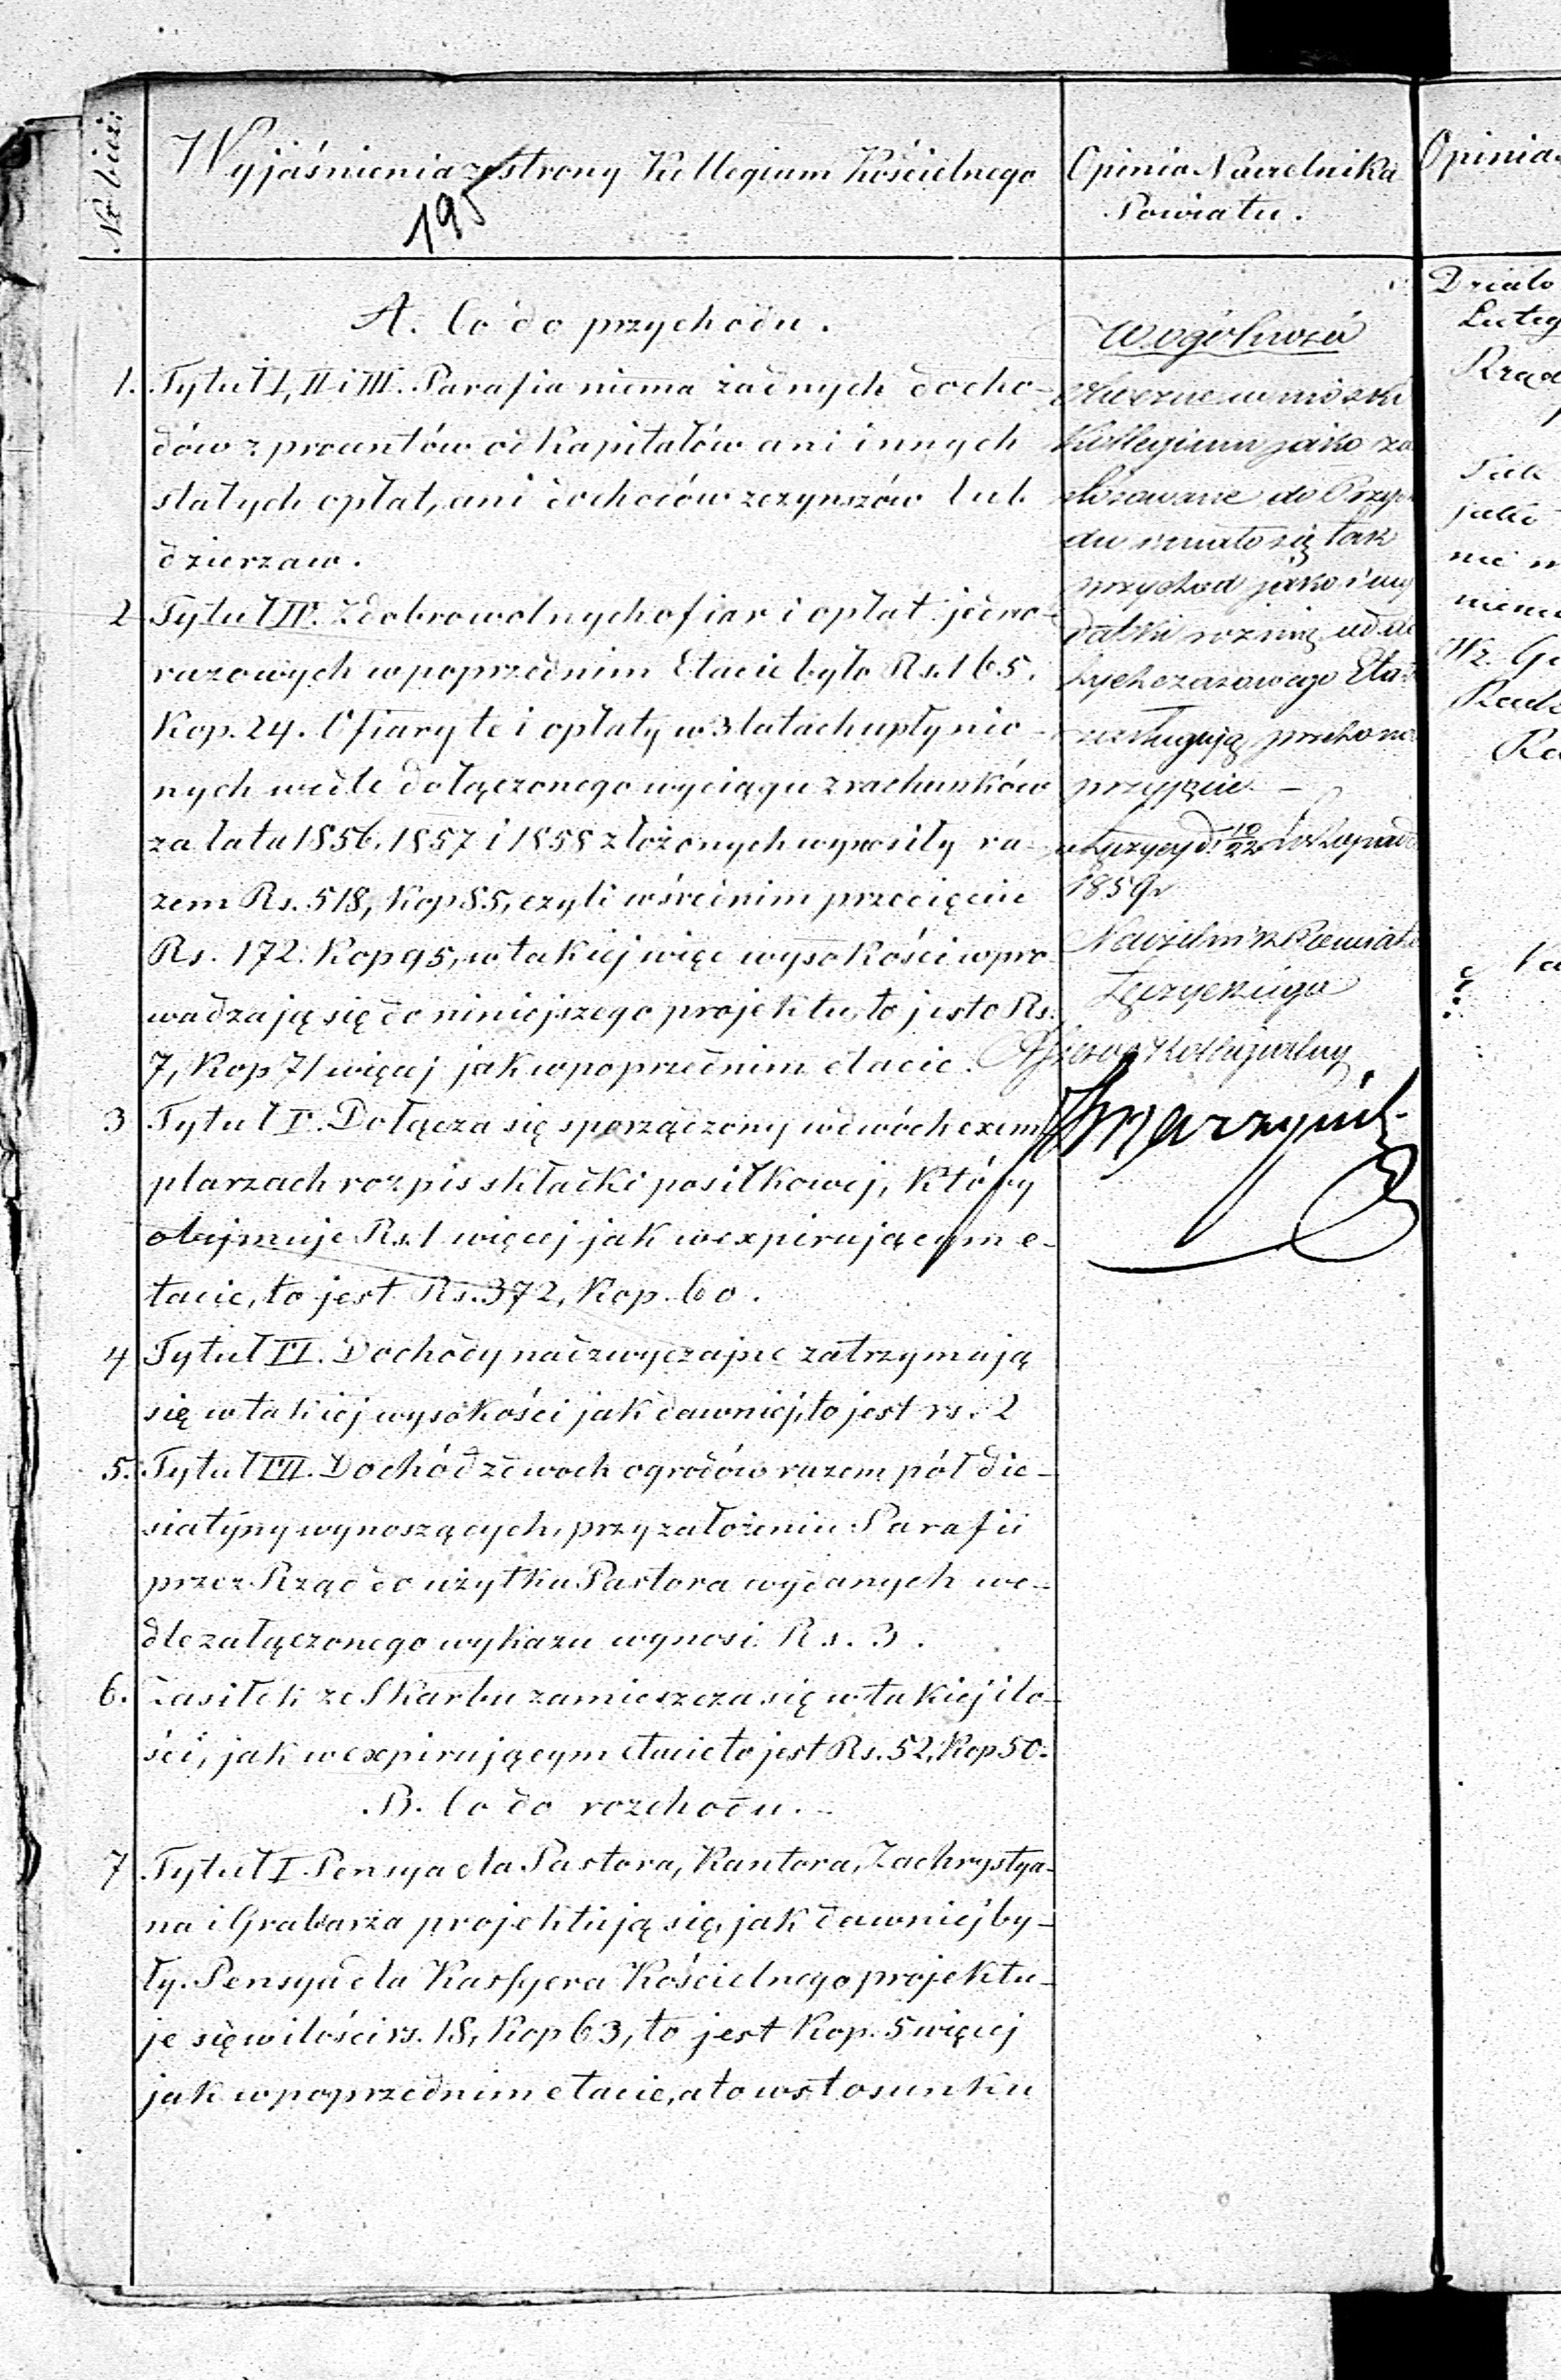 Nr bież:
Wyjaśnienia ze strony Kollegium Kościelnego
195
A. Co do przychodu.
1. Tytuł I, II i III. Parafia niema żadnych docho-
dów z procentów od Kapitałów ani innych
stałych opłat, ani dochodów z czynszów lub
dzierzaw.
2 Tytuł IV. Z dobrowolnych ofiar i opłat jedno-
razowych w poprzednim Etacie było Rs. 165.
Kop. 24. Ofiary te i opłaty w 3 latach upłynio-
nych wedle dołączonego wyciągu z rachunków
za lata 1856, 1857 i 1858 złożonych wynosiły ra-
zem Rs. 518, Kop 85, czyli w średnim przecięciu
Rs. 172. Kop 95, w takiej więc wysokości wpro
wadzają się do niniejszego projektu, to jest o Rs.
7, Kop 71 więcej jak w poprzednim etacie.
3 Tytuł V. Dołącza się sporządzony w dwóch exem
plarzach rozpis składki posiłkowej, który
obejmuje Rs. 1 więcej jak w expirującym e-
tacie, to jest Rs. 372, Kop. 60.
4 Tytuł VI. Dochody nadzwyczajne zatrzymują
się w takiej wysokości jak dawniej, to jest rs. 2
5. Tytuł VII. Dochód z dwoch ogrodów razem pół die-
siatyny wynoszących, przy założeniu Parafii
przez Rząd do użytku Pastora wydanych we-
dle załączonego wykazu wynosi Rs. 3.
6. Zasiłek ze Skarbu zamieszcza się w takiej ilo-
ści, jak w expirującym etacie to jest Rs. 52, Kop 50.
B. Co do rozchodu.
7 Tytuł I Pensya dla Pastora, Kantora, Zachrystya-
na i Grabarza projektują się, jak dawniej by-
ły. Pensya dla Kassyera Kościelnego projektu-
je się w ilości rs. 18, Kop 63, to jest Kop. 5 więcej
jak w poprzednim etacie, a to w stosunku
Opinia Naczelnika
Powiatu.
W ogólności
wnioski
Kollegium jako za
do Przyp
du się tak
przychod jako i wy
datki różnią od do
tychczasowego Eta
zasługują
przyjęcie –
w Łęczycy d. 10/22 Listopad
1859 r
Naczelnik Powiatu
Łęczyckiego
Assesor Kollegialny
Opinia
Działo
Luteg
Rząd
Tak
jako
nie
Wz. Gu
Radz